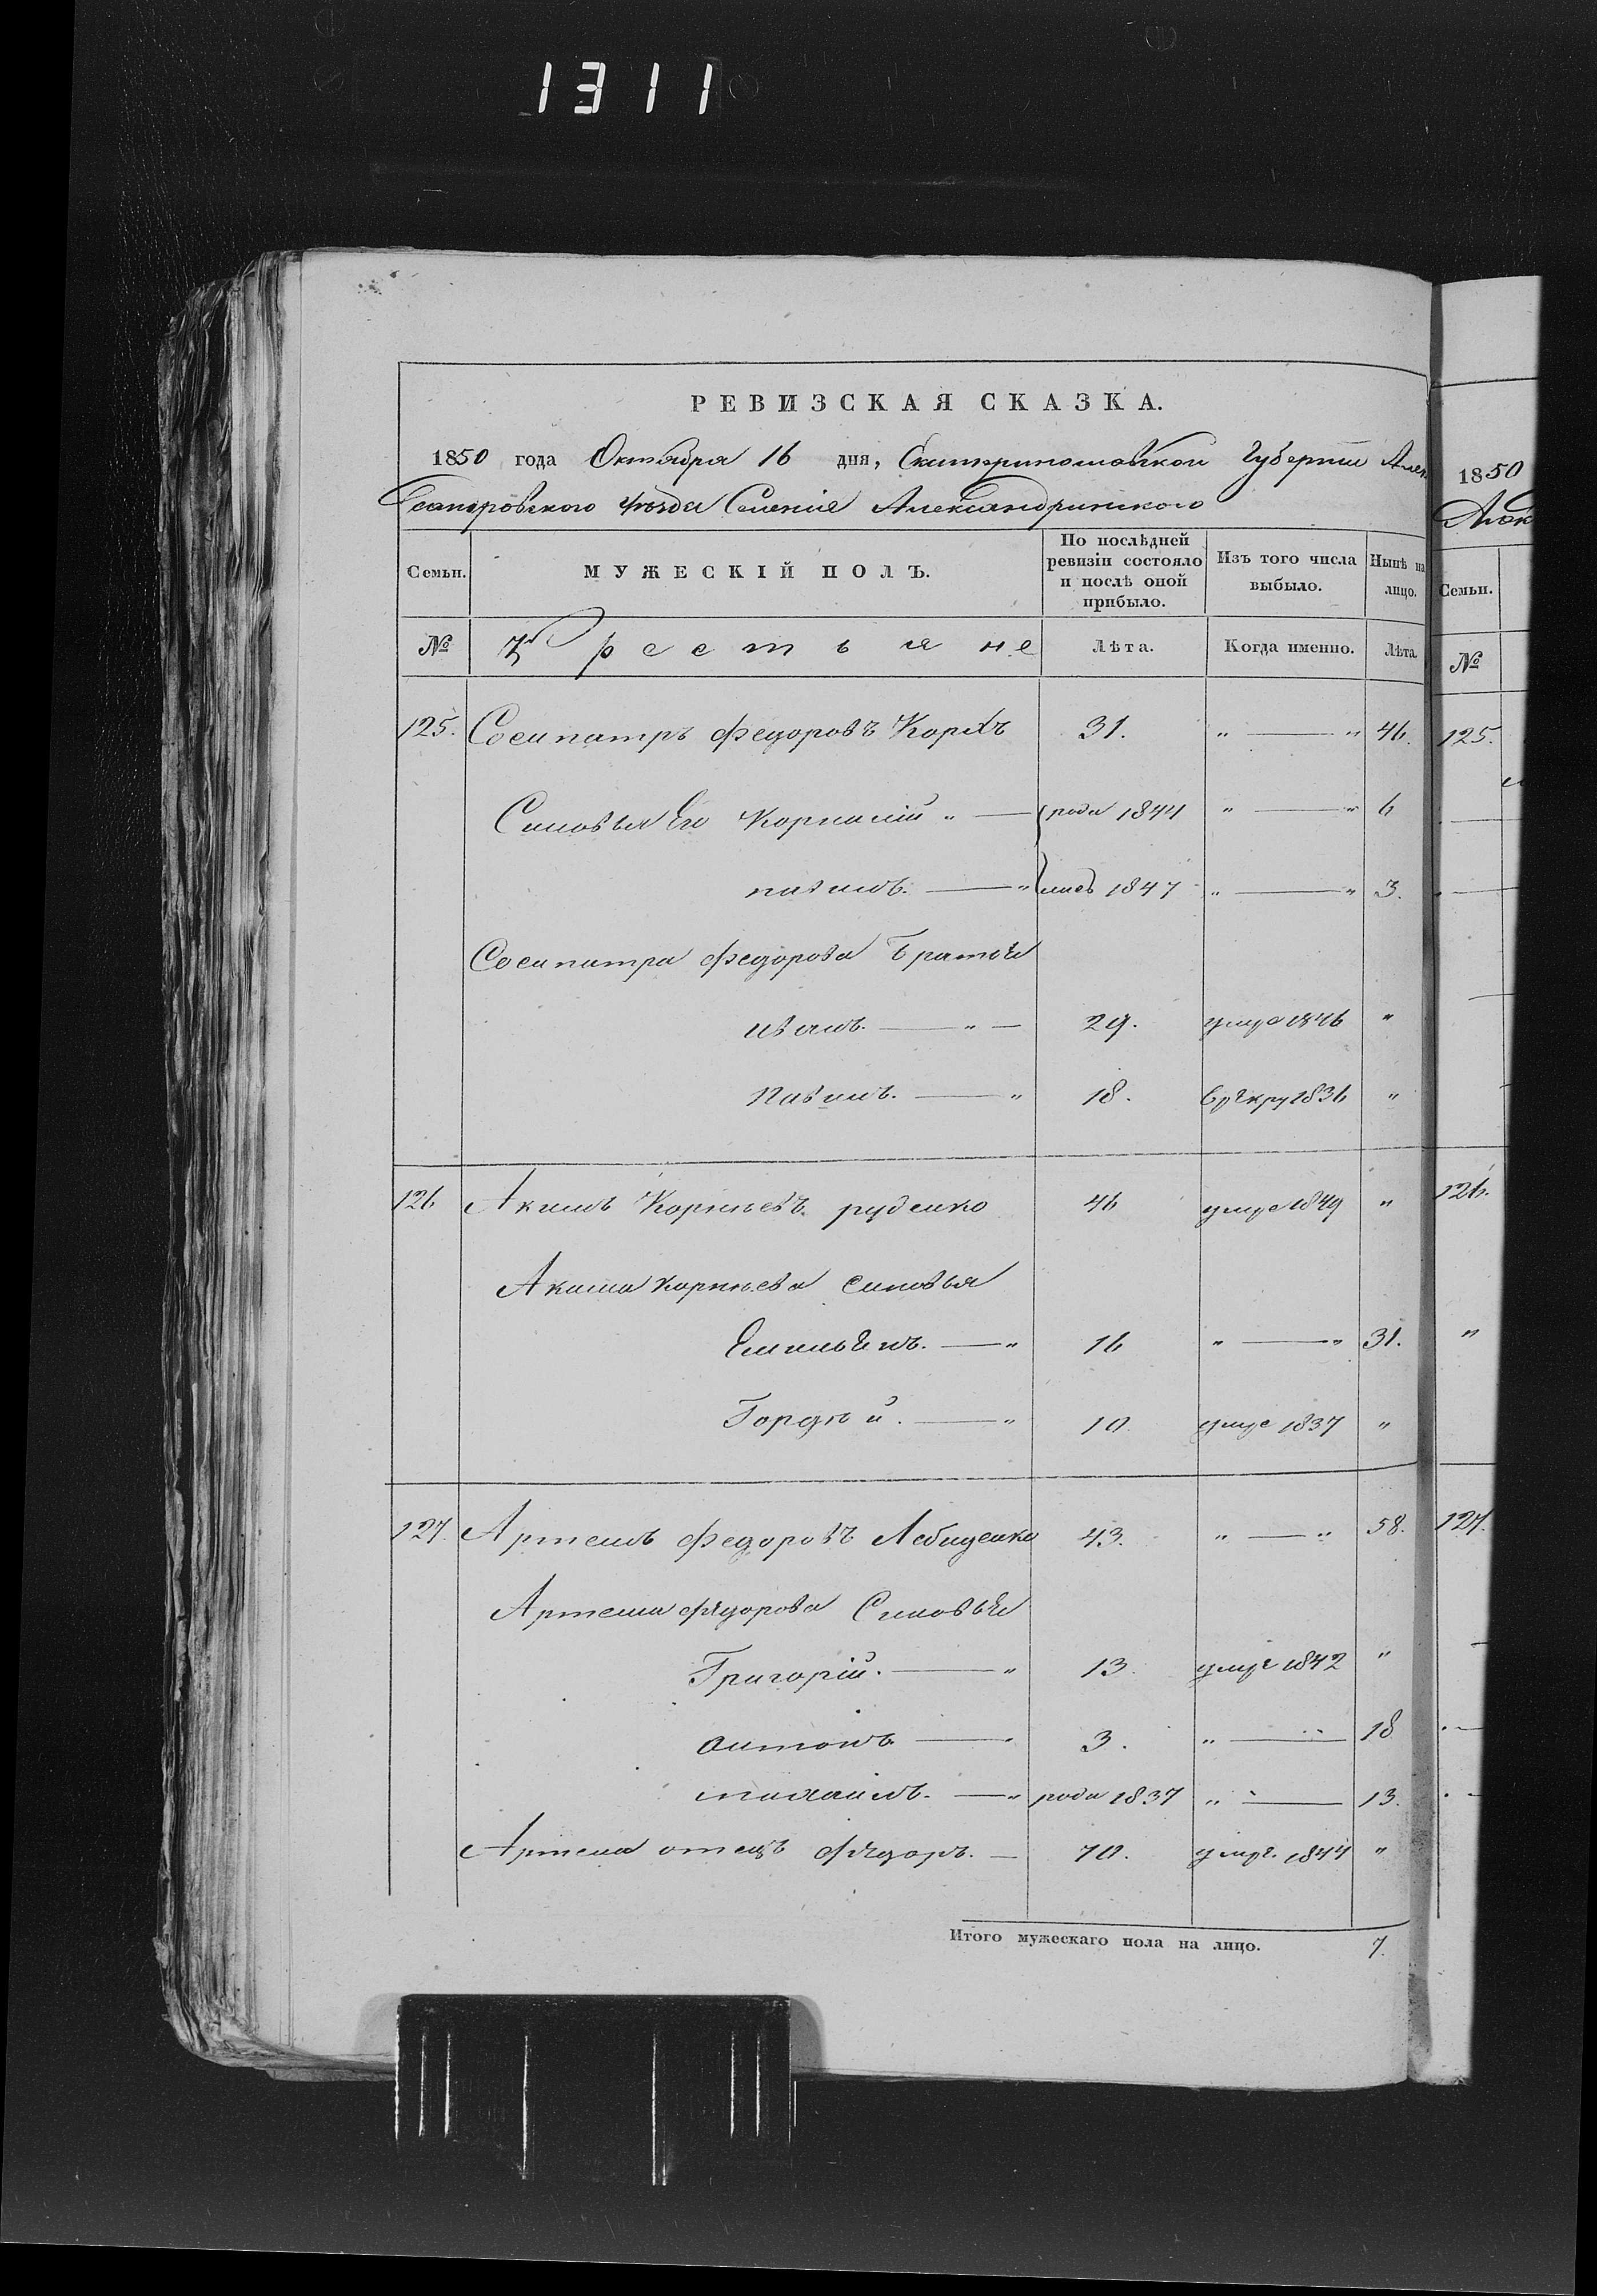 1311
РЕВИЗСКАЯ СКАЗКА.
1850 года Октября 16 дня, Екатеринославской Губернии Алек
сандровского уѣзда Селенія Александринского
Семьи. МУЖЕСКІЙ ПОЛЪ. По послѣдней ревизіи состояло и послѣ оной прибыло. Изъ того числа выбыло. Нынѣ на лицо.
№ Крестьяне Лѣта. Когда именно. Лѣта.
125. Сосипатръ Федоровъ 31. " — " 46.
Синовья Его Корнилій " — рода 1844 " — " 6
павилъ. — " 1847 " — " 3.
Сосипатра Федорова Братья
иванъ. — " — 29. умре 1846 "
Павилъ. — " 18. в рекру 1836 "
126 Акимъ Корнѣевъ руденко 46 умре 1849 "
Акима Корнѣева синовья
Емильянъ. — " 16 " — " 31.
Гордѣй. — " 10. умре 1837 "
127. Артемъ Федоровъ Лебиденко 43. " — " 58.
Артема Федорова Синовья
Григорій. — " 13. умре 1842 "
антонъ — " 3. " — 18
михаилъ. — " рода 1837 " — 13.
Артема отецъ Федоръ. — 70. умре. 1844 "
Итого мужескаго пола на лицо. 7.
1850
Семьи.
№
125.
126.
"
127.